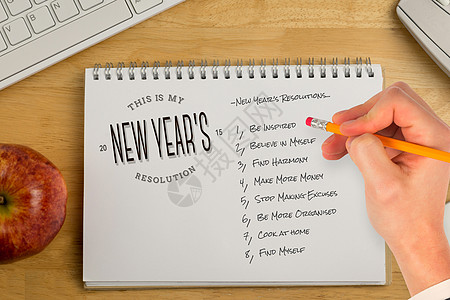 THIS IS MY
20 NEW YEAR'S 15
RESOLUTION
-New Year's Resolutions...
1, Be Inspired
2, Believe in Myself
3, Find Harmony
4, Make More Money
5, Stop Making Excuses
6, Be More Organised
7, Cook at home
8, Find Myself